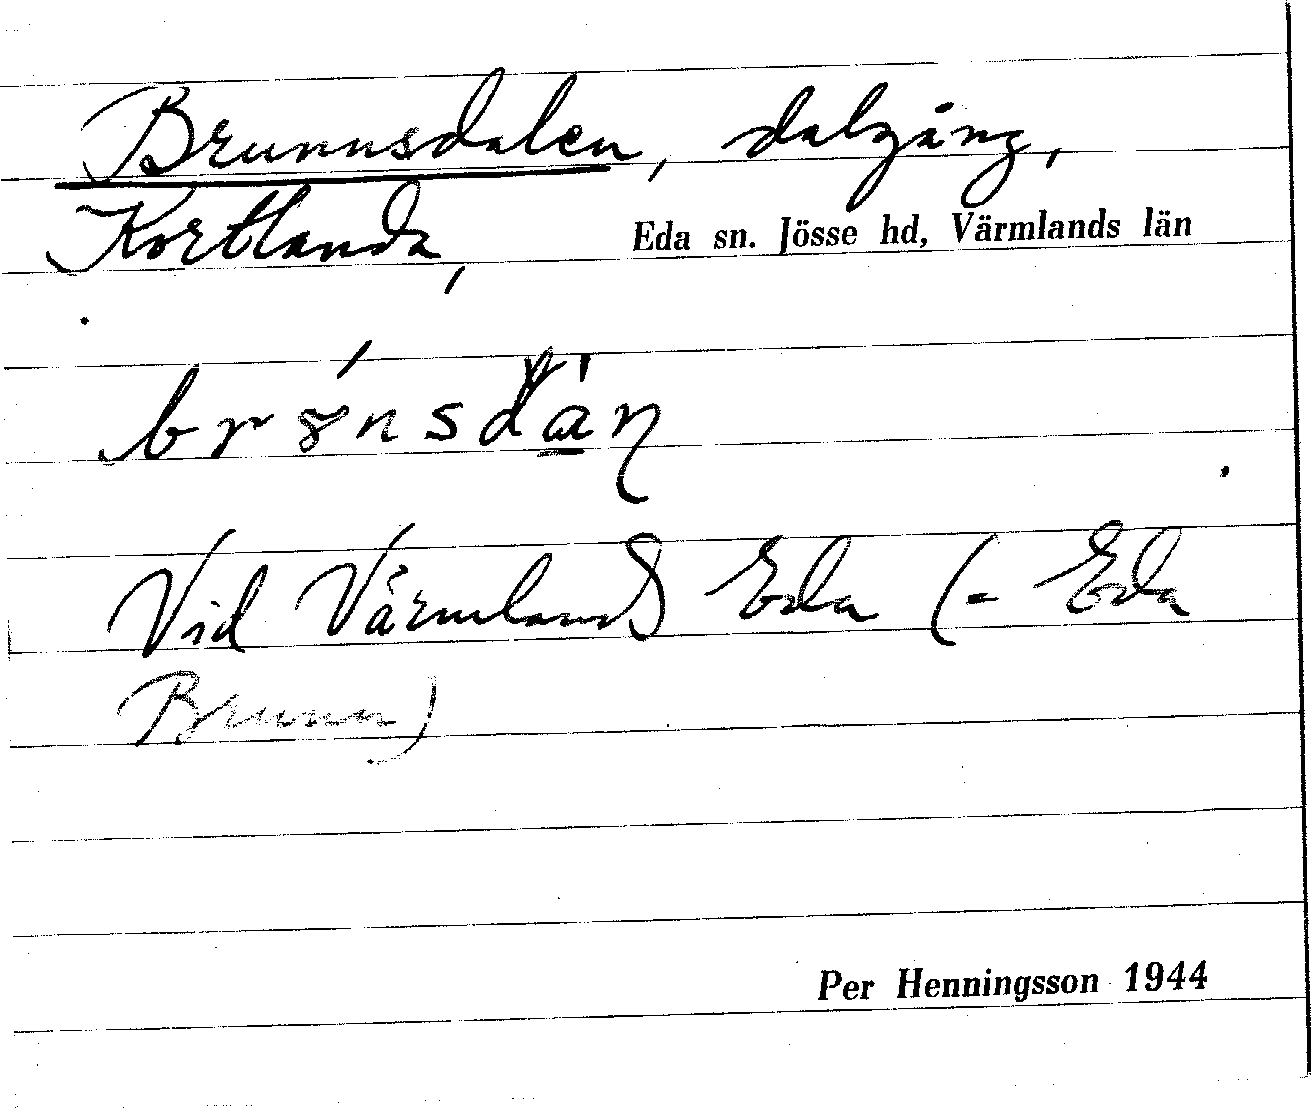 Brunnsdalen, dalgång,
Kortlanda, Eda sn. Jösse hd, Värmlands län
Vid Värmlands Eda (- Eda
Brunn)
Per Henningsson 1944